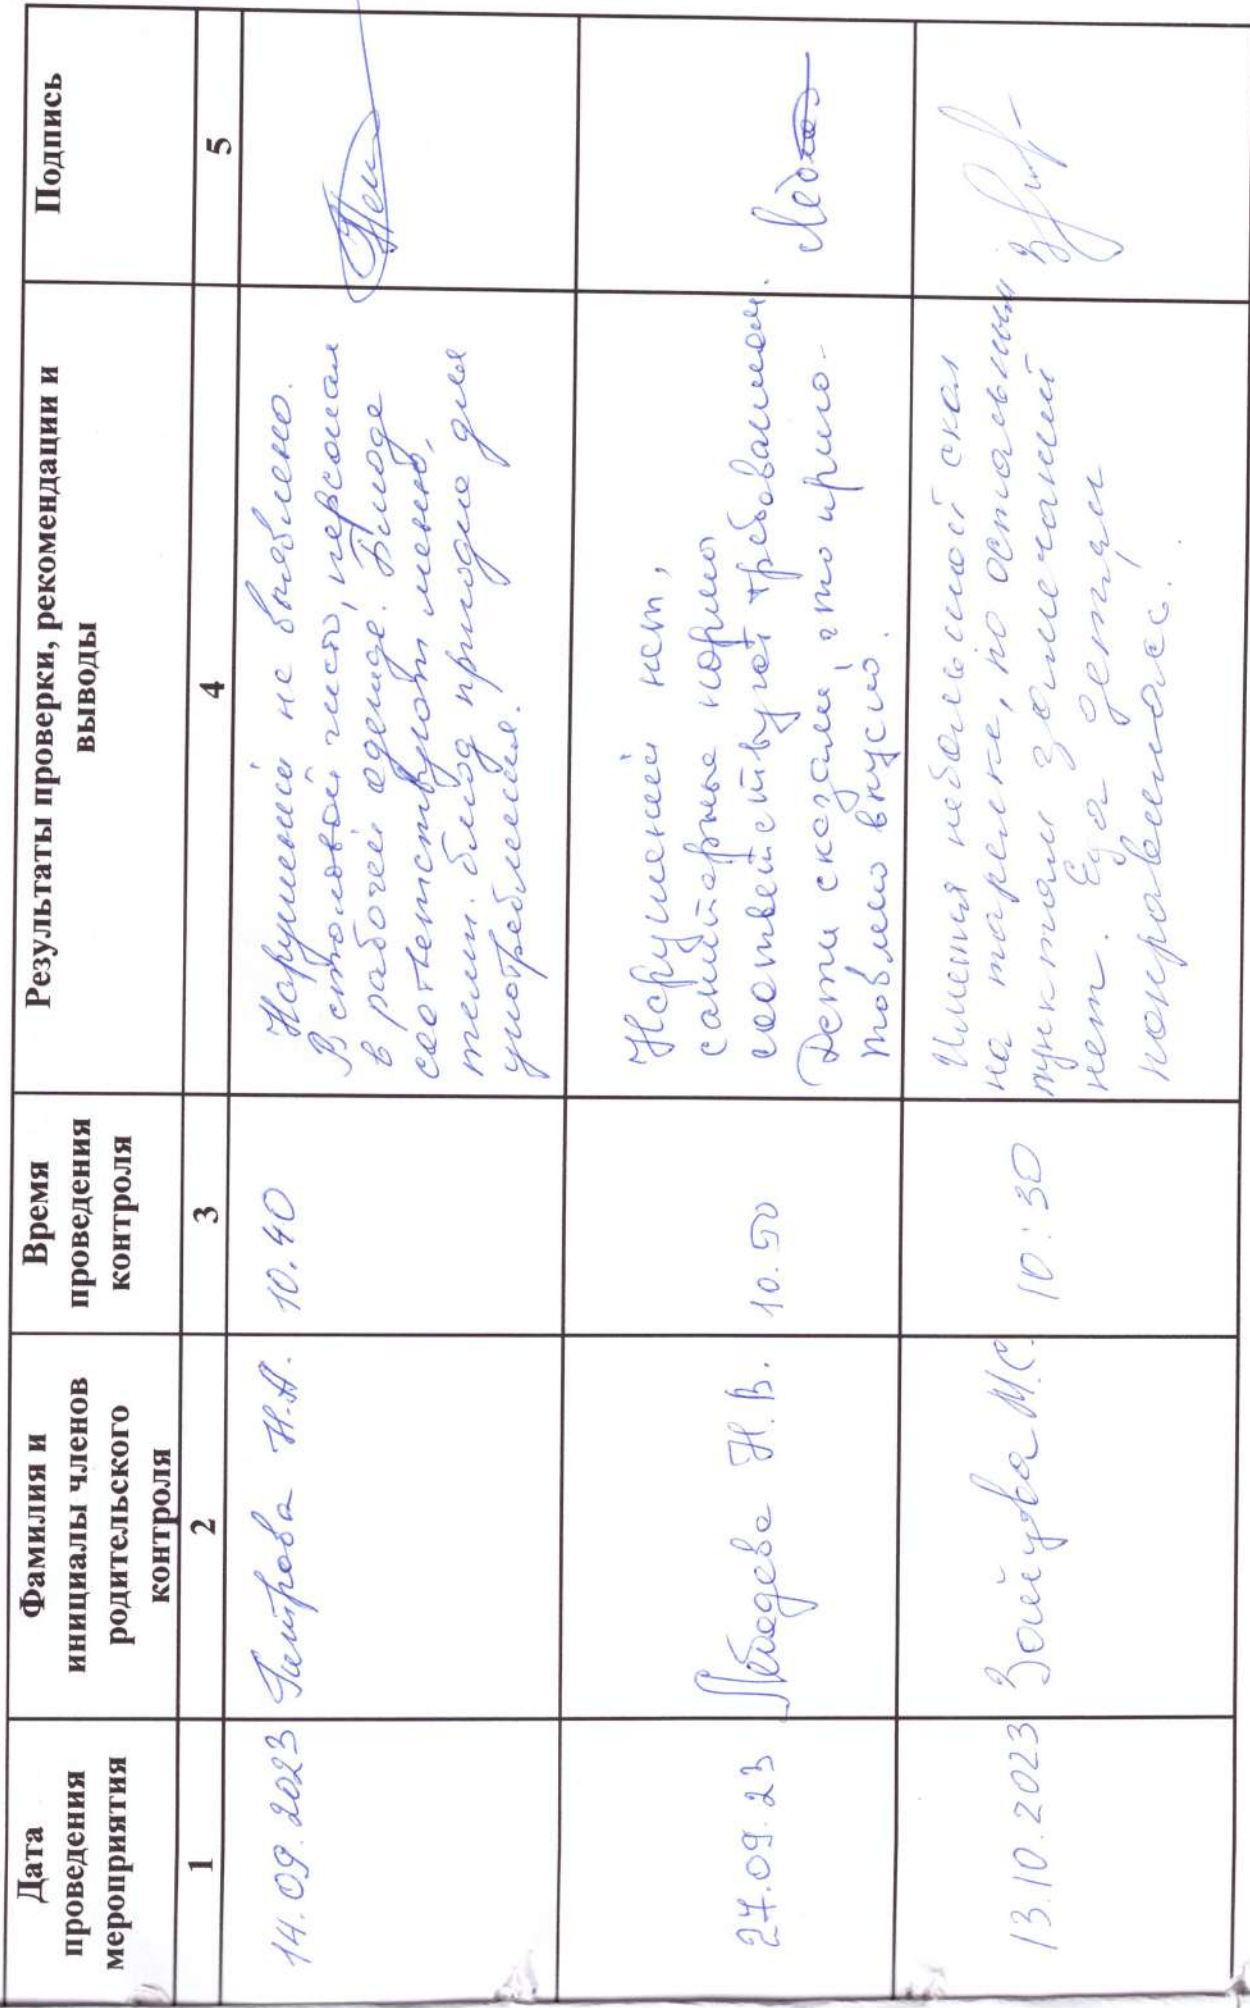 Дата
проведения
мероприятия
Фамилия и
инициалы членов
родительского
контроля
Время
проведения
контроля
Результаты проверки, рекомендации и
выводы
Подпись
1
2
3
4
5
14.09.2023
Н.А.
10.40
Нарушений не выявлено.
В столовой чисто, персонал
в рабочей одежде. Блюда
соответствуют меню,
темп. блюд пригодна для
употребления.
27.09.23
Лебедева Н.В.
10.50
Нарушений нет,
санитарные нормы
соответствуют требованиям.
Дети сказали, что приго-
товлено вкусно.
13.10.2023
Зайцева М.С.
10:30
Имелся небольшой скол
на тарелке, по остальным
пунктам замечаний
нет. Еда детям
понравилась.